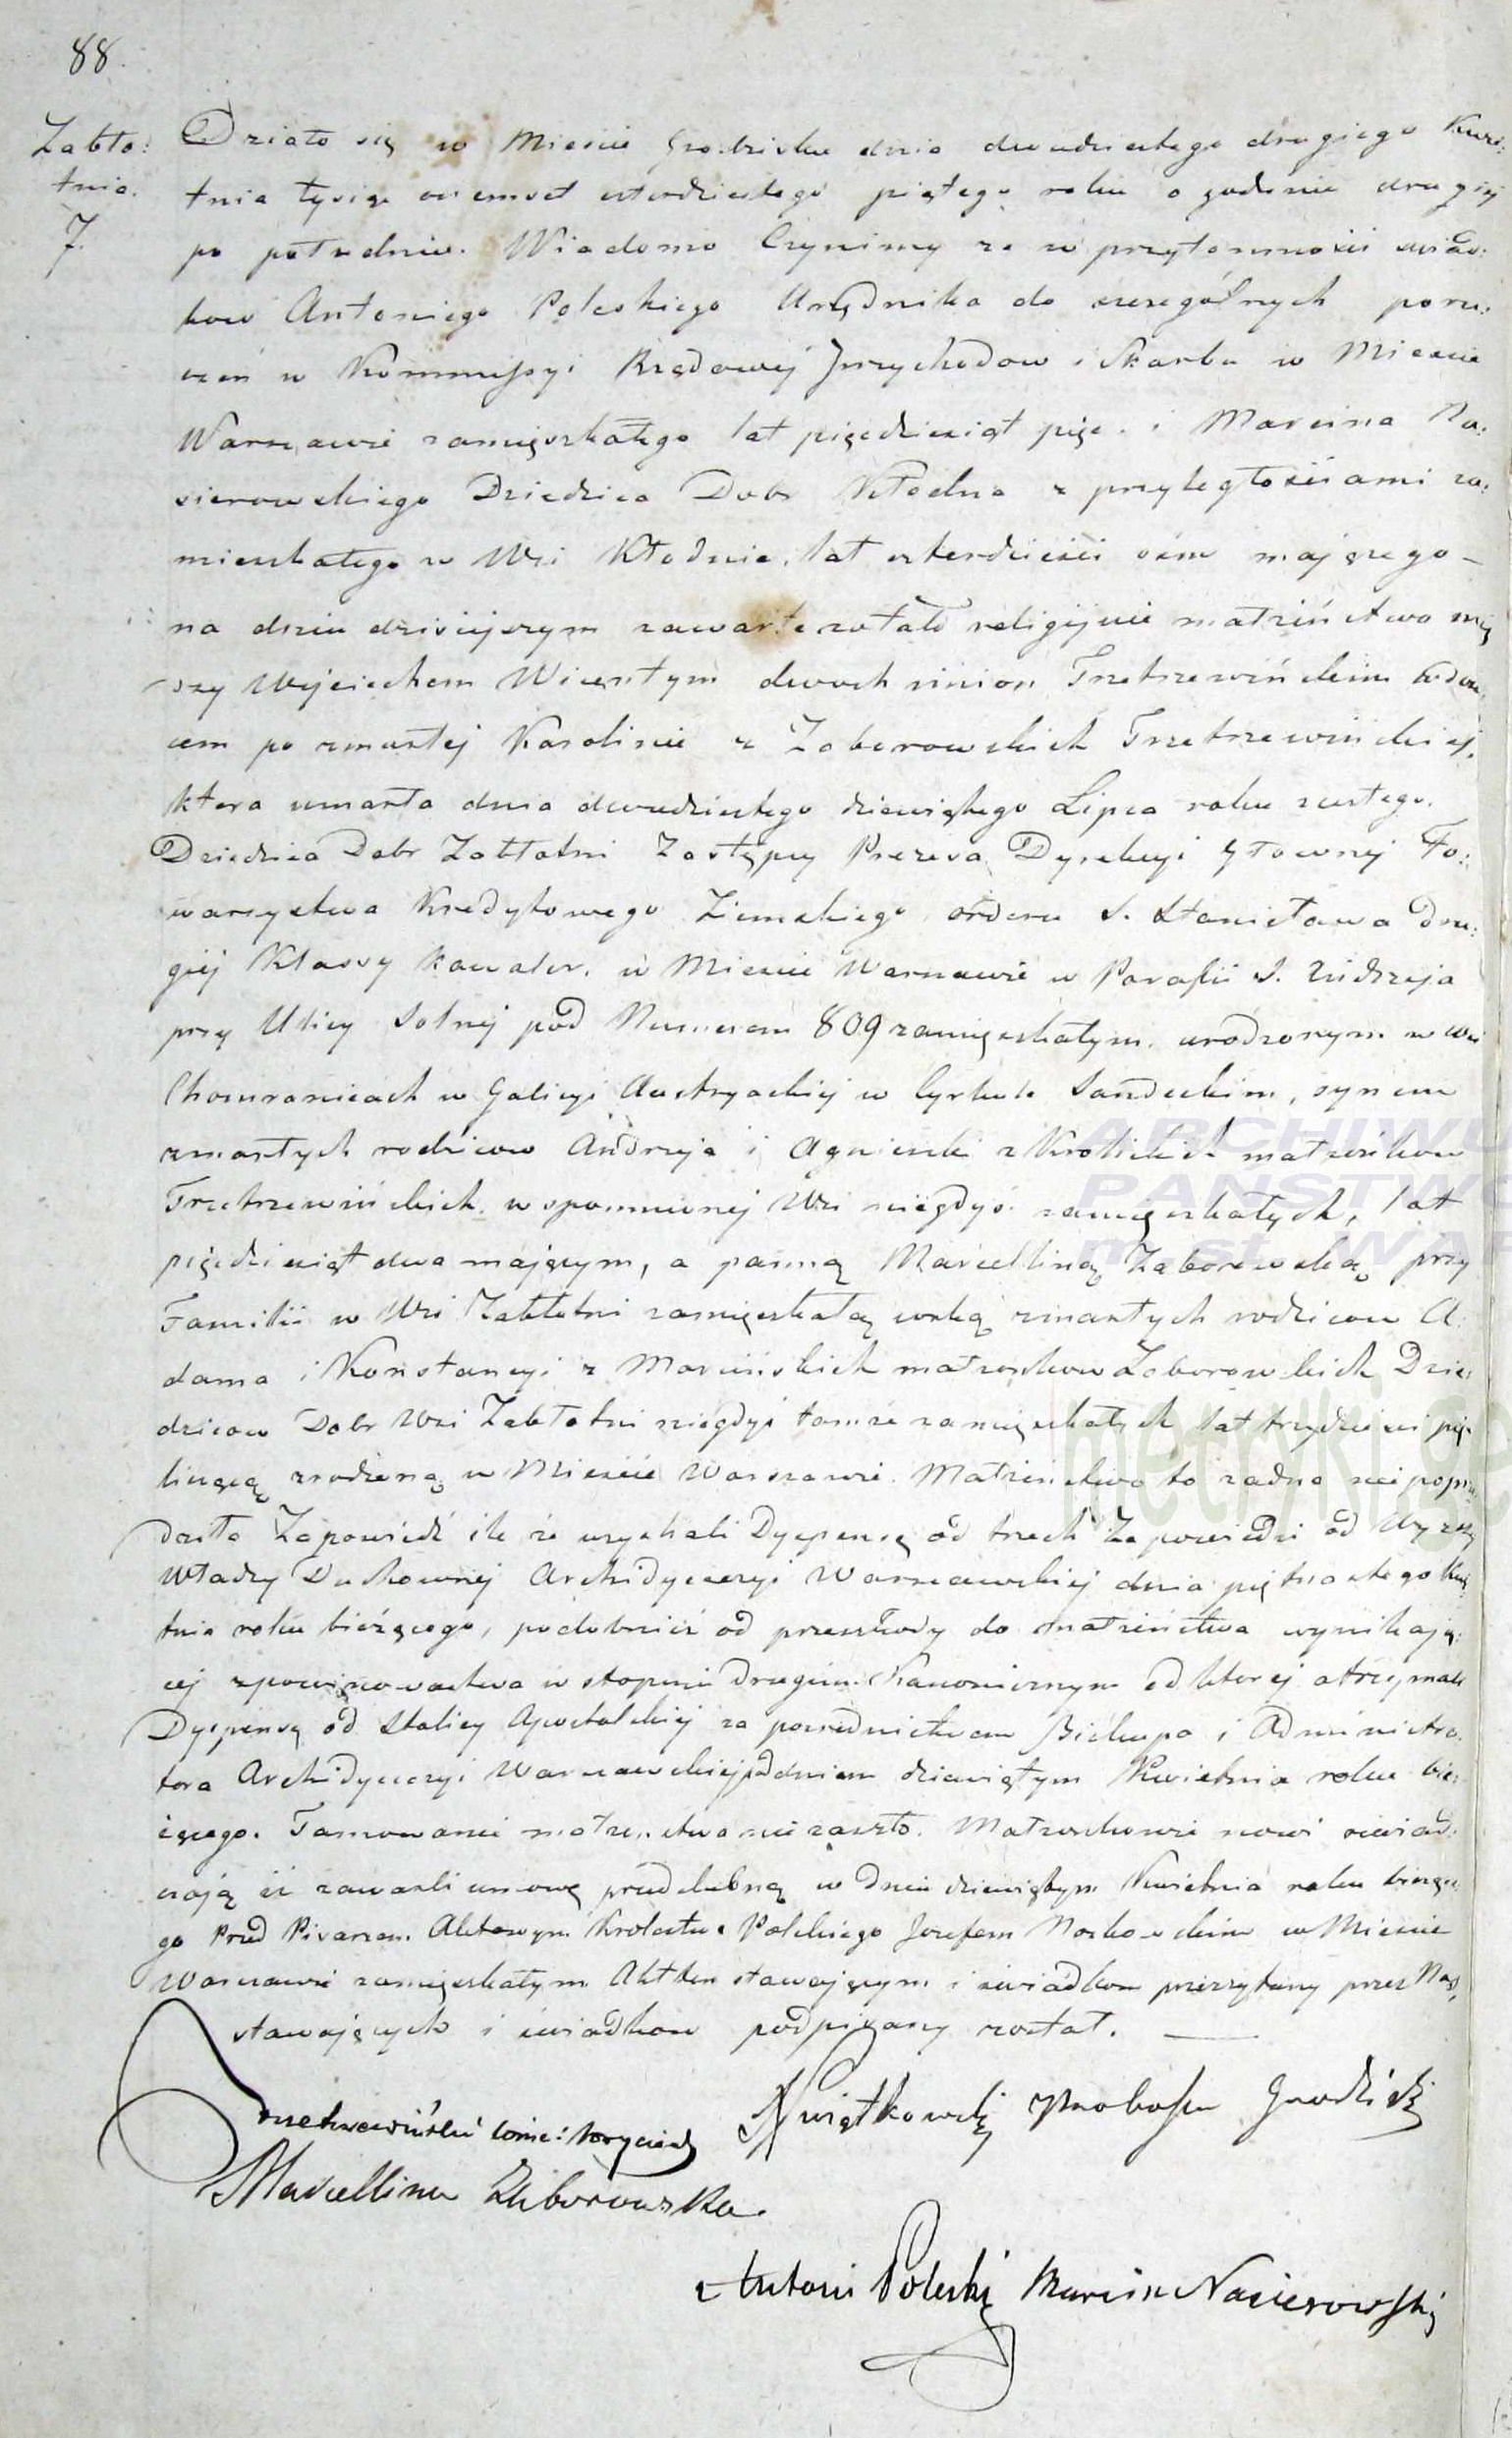 88.
Zabło:
tnia.
7.
Działo się w Mieście Grodzisku dnia dwudziestego drugiego Kwie:
tnia tysiąc osiemset czterdziestego piątego roku o godzinie drugiej
po południu. Wiadomo Czynimy że w przytomności świad:
kow Antoniego Poleskiego Urzędnika do szczególnych poru:
czeń w Kommissyi Rządowej Przychodow i Skarbu w Mieście
Warszawie zamięszkałego lat pięcdziesiąt pięc. i Marcina Na:
sierowskiego Dziedzica Dobr Kłodna z przyległościami za:
mieszkałego w Wsi Kłodnie, lat czterdzieści ośm mającego –
na dniu dzisiejszym zawarte zostało religijnie małżeństwo mię
dzy Wojciechem Wincentym dwoch imion Trzetrzewińskim wdow
cem po zmarłej Karolinie z Zaborowskich Trzetrzewińskiej,
ktora umarła dnia dwudziestego dziewiątego Lipca roku zeszłego.
Dziedzica Dobr Zabłotni Zastępcy Prezesa Dyrekcyi Głownej To:
warzystwa Kredytowego Ziemskiego, orderu S. Stanisława Dru:
giej Klassy Kawaler. w Mieście Warszawie w Parafii S. Andrzeja
przy Ulicy Solnej pod Numerem 809 zamięszkałym. urodzonym w wsi
Chomranicach w Galicyi Austryackiej w Cyrkule Sandeckim, synem
zmarłych rodzicow Andrzeja i Agnieszki z Krolickich małżonkow
Trzetrzewińskich, w spomnionej Wsi niegdyś zamięszkałych, lat
pięcdziesiąt dwa mającym, a panną Marcellinną Zaborowską przy
Familii w Wsi Zabłotni zamięszkałą corką zmarłych rodzicow A:
dama i Konstancyi z Marcińskich małżonkow Zaborowskich Dzie:
dzicow Dobr Wsi Zabłotni niegdyś tamże zamięszkałych lat trzydzieści pięc
liczącą zrodzoną w Mieście Warszawie. Małżeństwo to żadna nie poprze
dziła Zapowiedź ile że uzyskali Dyspensę od trzech Zapowiedzi od Wyższej
Władzy Duchownej Archidyecezyi Warszawskiej dnia piętnastego Kwie
tnia roku bieżącego, podobnież od przeszkody do małżeństwa wynikają:
cej z powinowactwa w stopniu drugim Kanonicznym od ktorej otrzymali
Dyspensę od Stolicy Apostolskiej za posrednictwem Biskupa i Administra:
tora Archidyecezyi Warszawskiej pod dniem dziewiątym Kwietnia roku bie:
żącego. Tamowanie małżeństwa nie zaszło. Małżonkowie nowi oświad:
czają iż zawarli umowę przedślubną w Dniu dziewiątym Kwietnia roku bieżące
go Przed Pisarzem Aktowym Krolestwa Polskiego Jozefem Noskowskim w Mieście
Warszawie zamięszkałym. Akt ten stawającym i świadkom przeczytany przez Nas,
stawających i świadkow podpisany został. —
Trzetrzewiński
Kwiątkowski Proboszcz Grodziski
Marcellinna Zaborowska.
Antoni Poleski Marcin Nasierowski